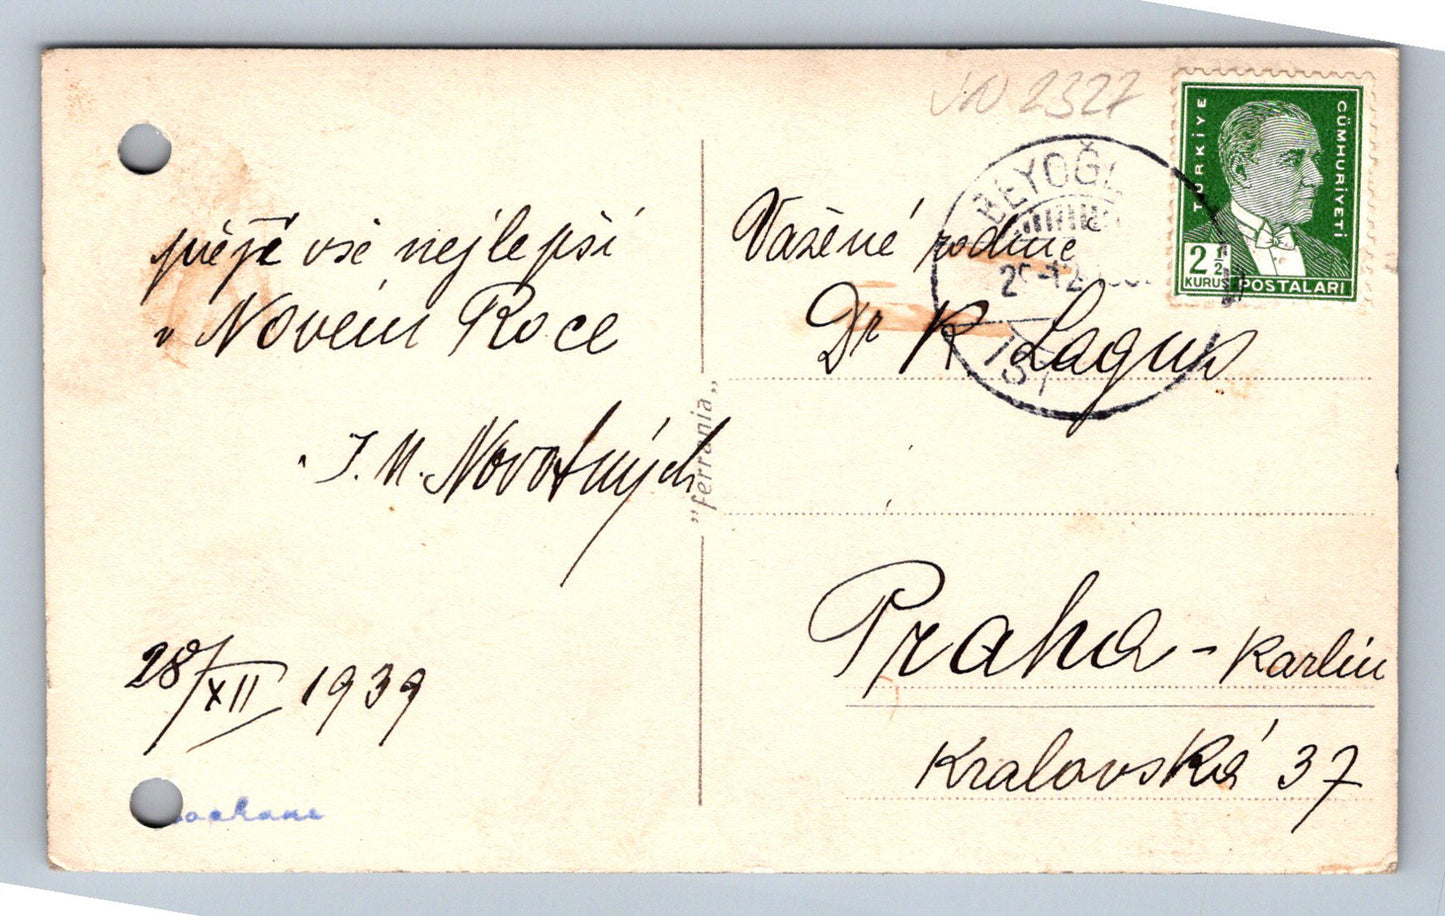 přeje vše nejlepší
v Novém Roce
J. M. Novotných
28/XII 1939
"ferrania"
VN 2327
TÜRKİYE
CÜMHURİYETİ
2 1/2
KURUŞ
POSTALARI
BEYOĞL
IST
Vážené rodině
Dr K. Lagus
Praha - Karlín
Kralovská 37